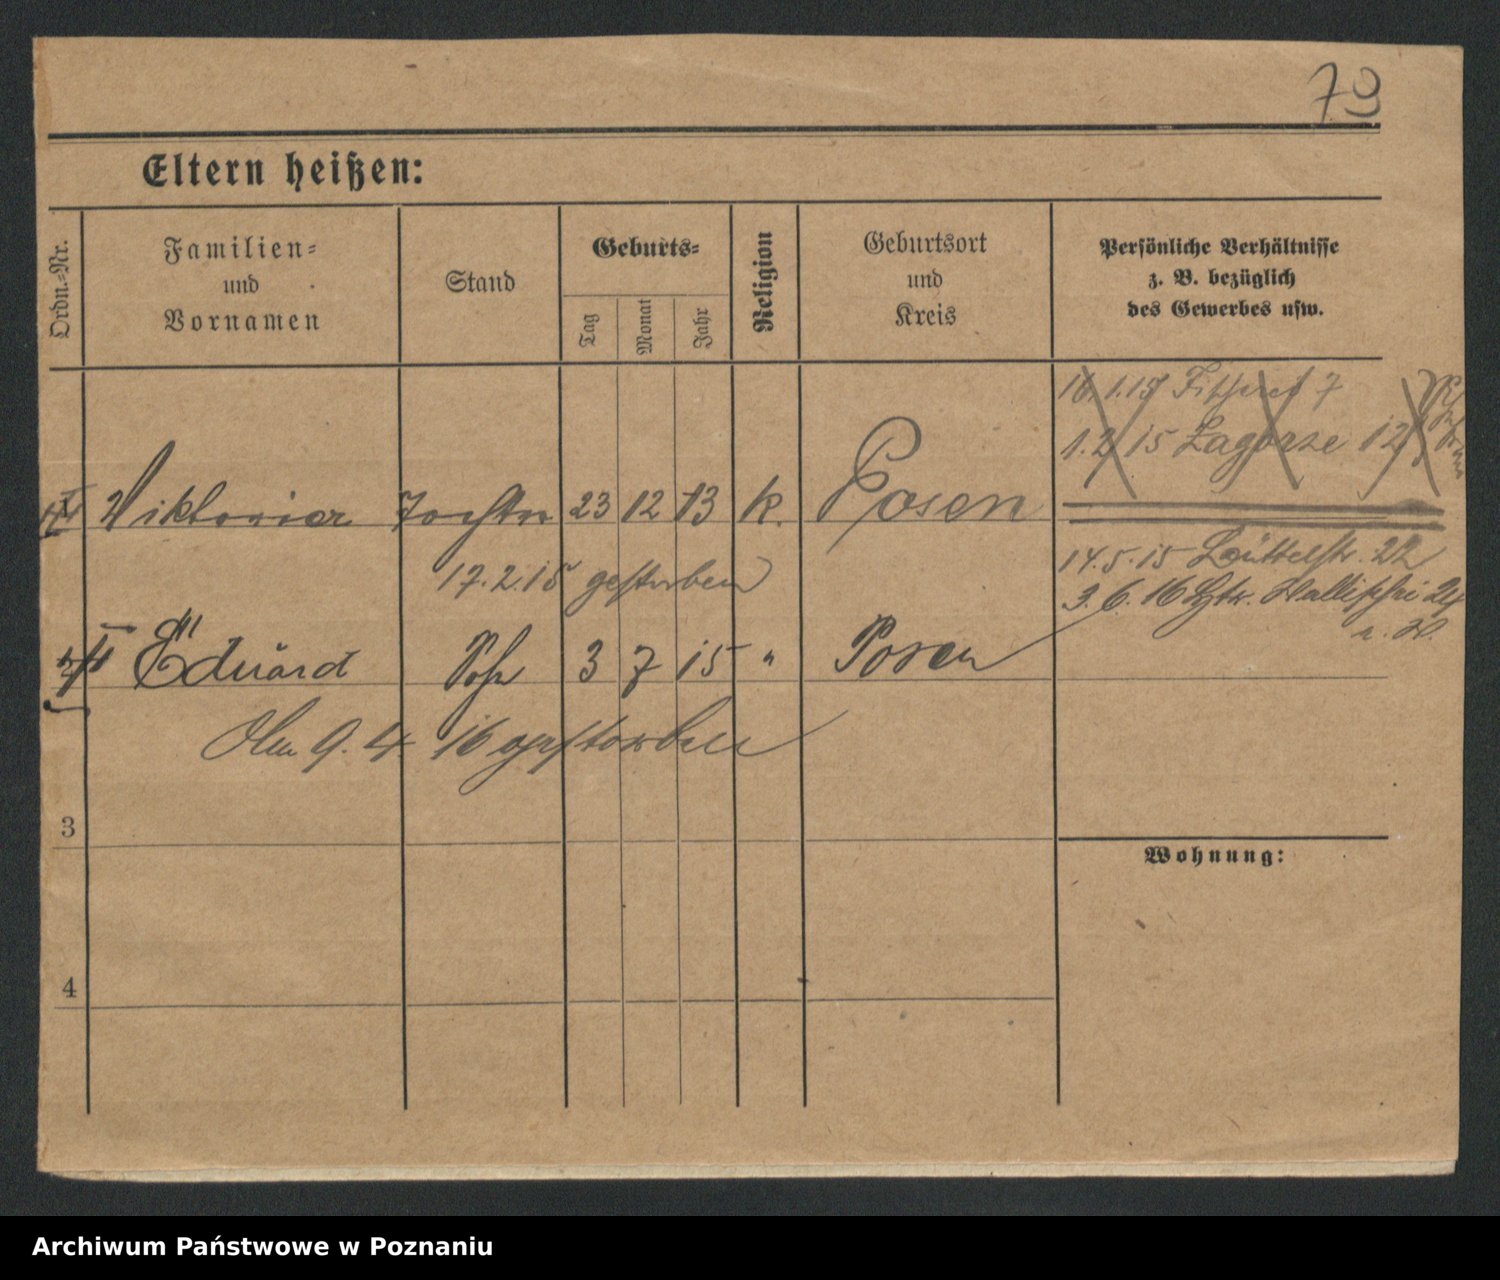 79
Eltern heißen:
Ordn.-Nr.
Familien-
und
Vornamen
Stand
Geburts-
Tag
Monat
Jahr
Religion
Geburtsort
und
Kreis
Persönliche Verhältnisse
z. B. bezüglich
des Gewerbes usw.
16.1.15 7
1.2.15 12
Viktoria Tochter 23 12 13 k. Posen
17.2.15 gestorben
14.5.15 22
3.6.16 24
Eduard Sohn 3 7 15 " Posen
Am 9.4.16 gestorben
3
Wohnung:
4
Archiwum Państwowe w Poznaniu